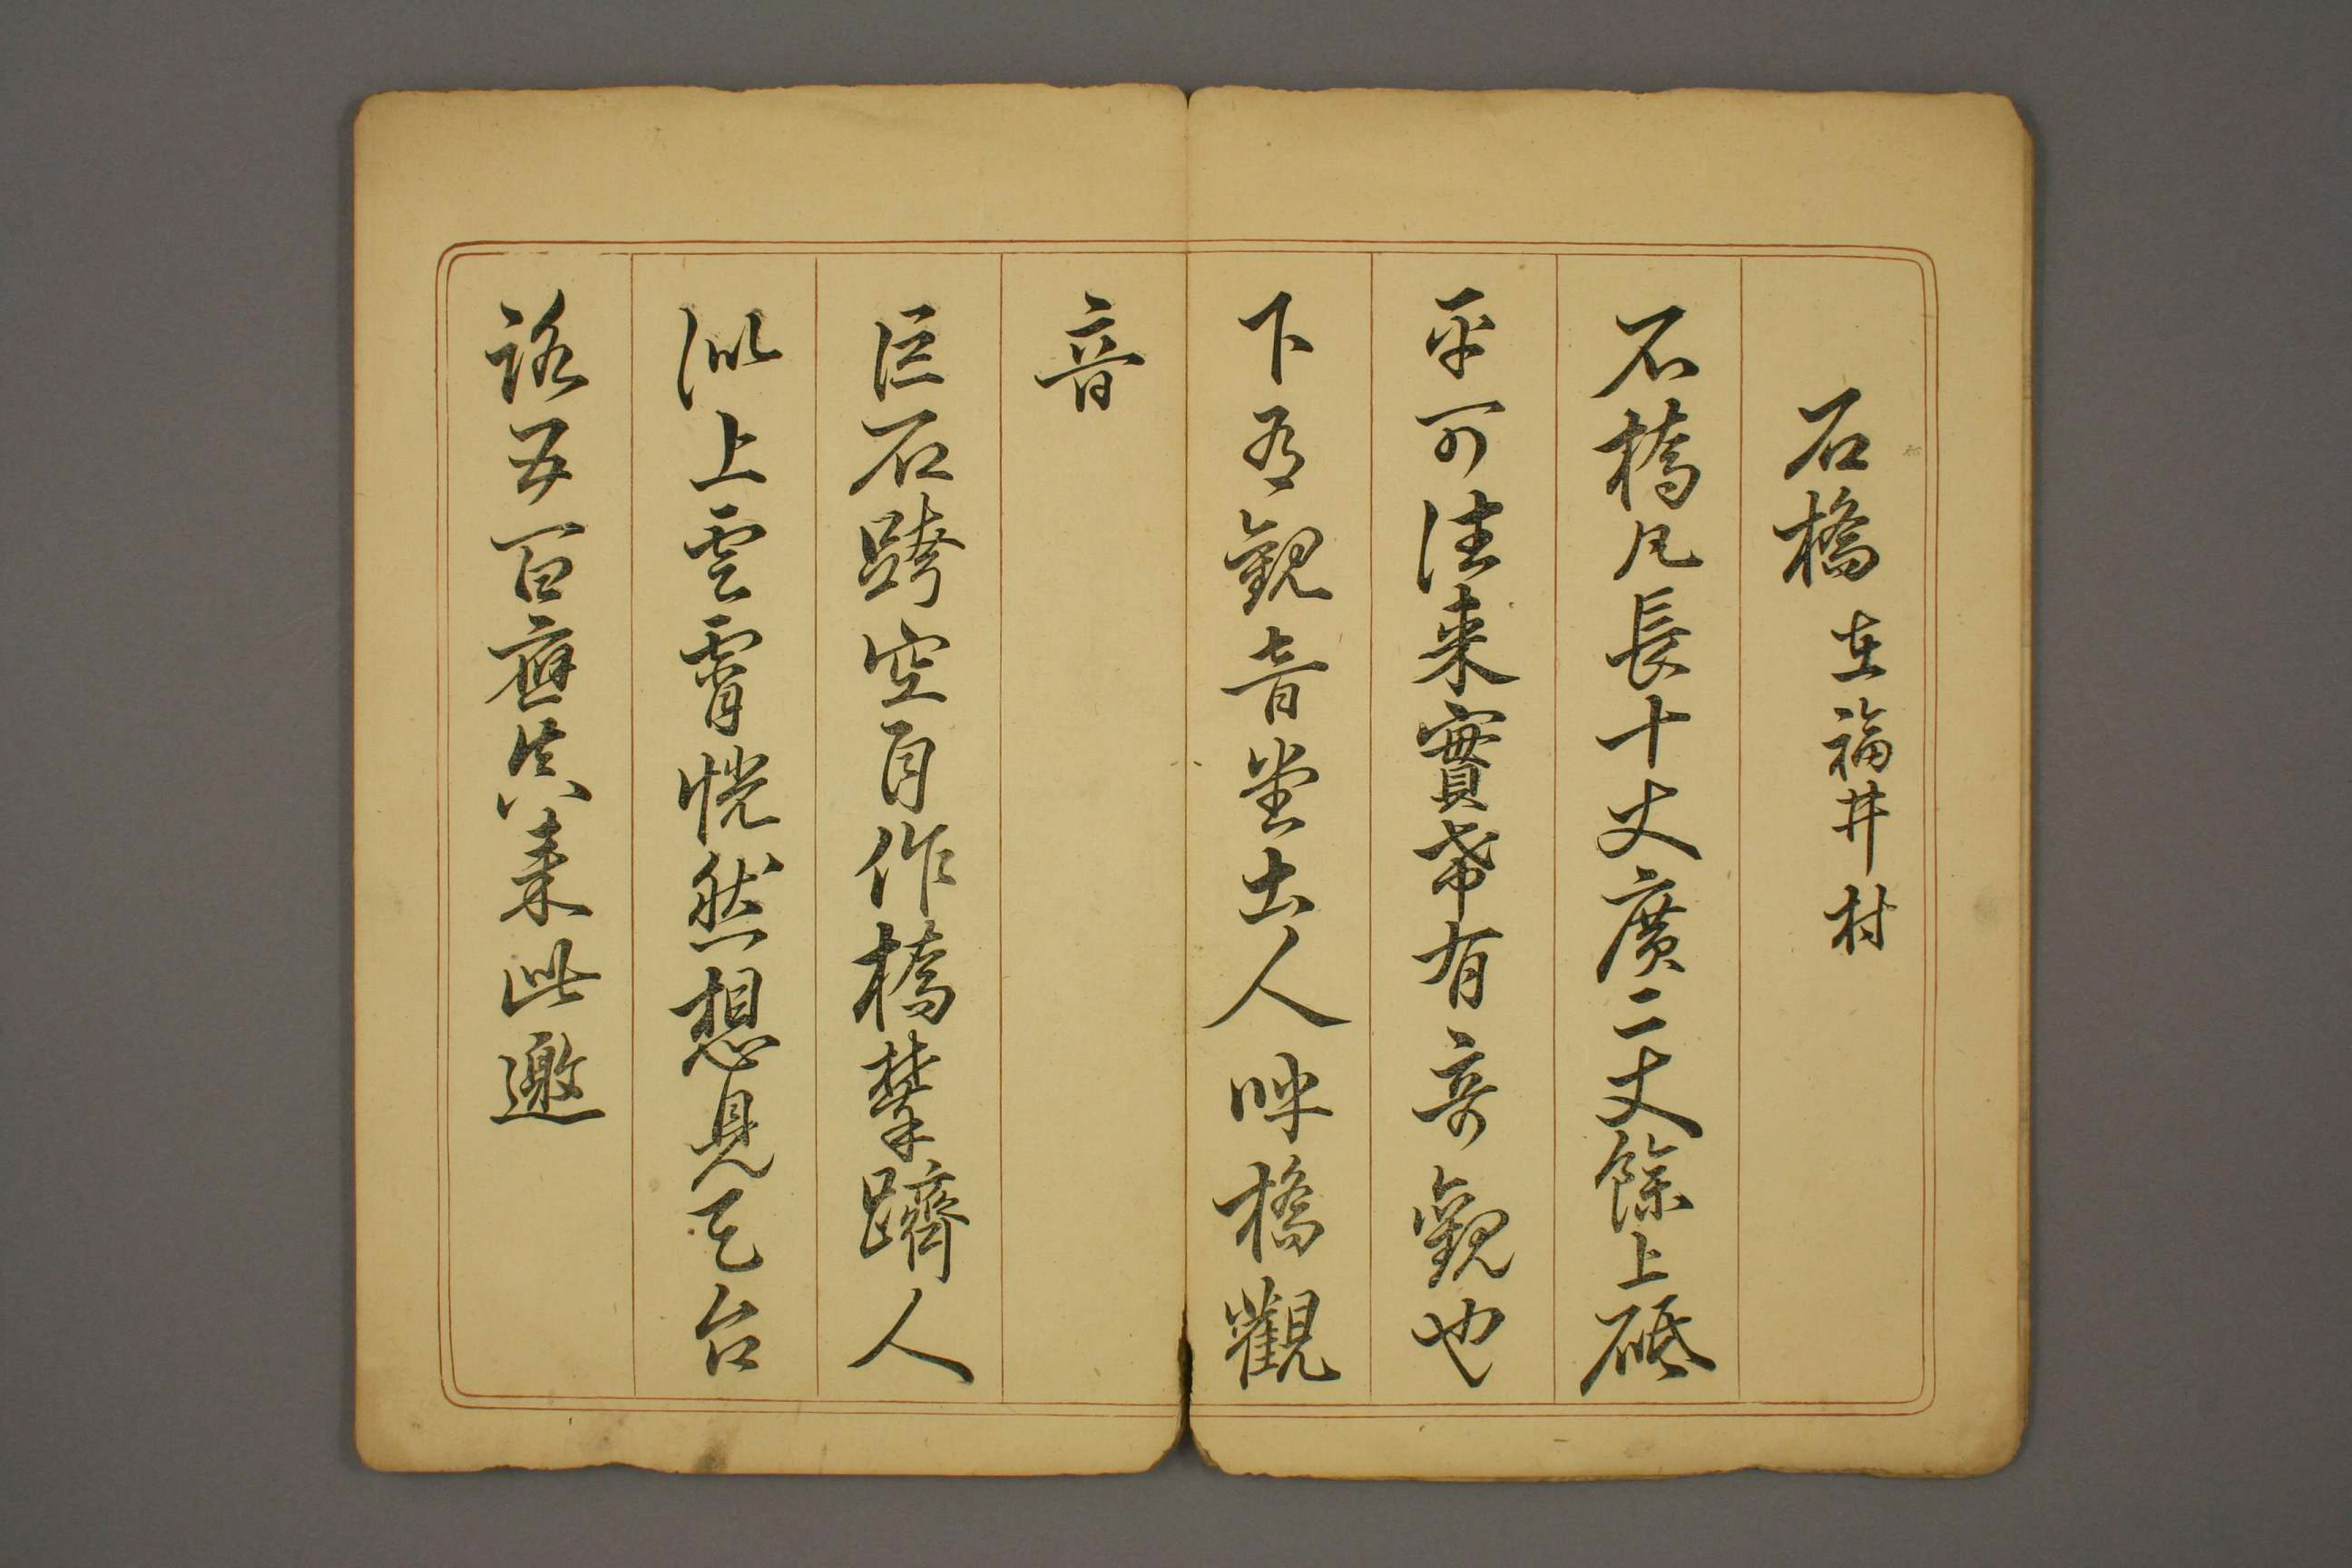 石橋 在福井村
石橋凡長十丈廣二丈餘上砥
平可往来實希有奇觀也
下有觀音堂土人呼橋觀
音
巨石跨空自作橋攀躋人
似上雲霄恍然想見天台
路五百應真来此邀